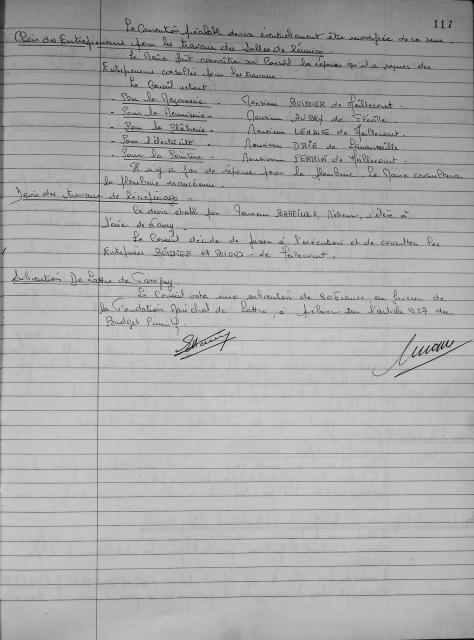 117
La Convention préalable devra éventuellement être modifiée de ce sens.
Choix des Entrepreneurs pour les travaux des Salles de Réunion
Le Maire fait connaître au Conseil les réponses qu'il a reçues des
Entrepreneurs consultés pour les travaux
Le Conseil retient :
- Pour la Maçonnerie - Monsieur BOISSIER de Heillecourt.
- Pour la Menuiserie - Monsieur AUBRY de Fléville
- Pour la Plâtrerie - Monsieur LEMAIRE de Heillecourt.
- Pour l'électricité - Monsieur de Laneuveville
- Pour la Peinture - Monsieur PERRIN de Heillecourt.
Il n'y a pas de réponse pour la plomberie. Le Maire consultera
la Plomberie nancéienne.
Devis des travaux de
Le devis établi par Monsieur , Métreur, s'élève à
de Nancy.
Le Conseil décide de passer à l'exécution et de consulter les
Entreprises BOISSIER et - de Heillecourt.
Subvention De Lattre de Tassigny
Le Conseil vote une subvention de francs en faveur de
la Fondation Maréchal de Lattre, à prélever sur l'article 657 du
Budget Primitif.